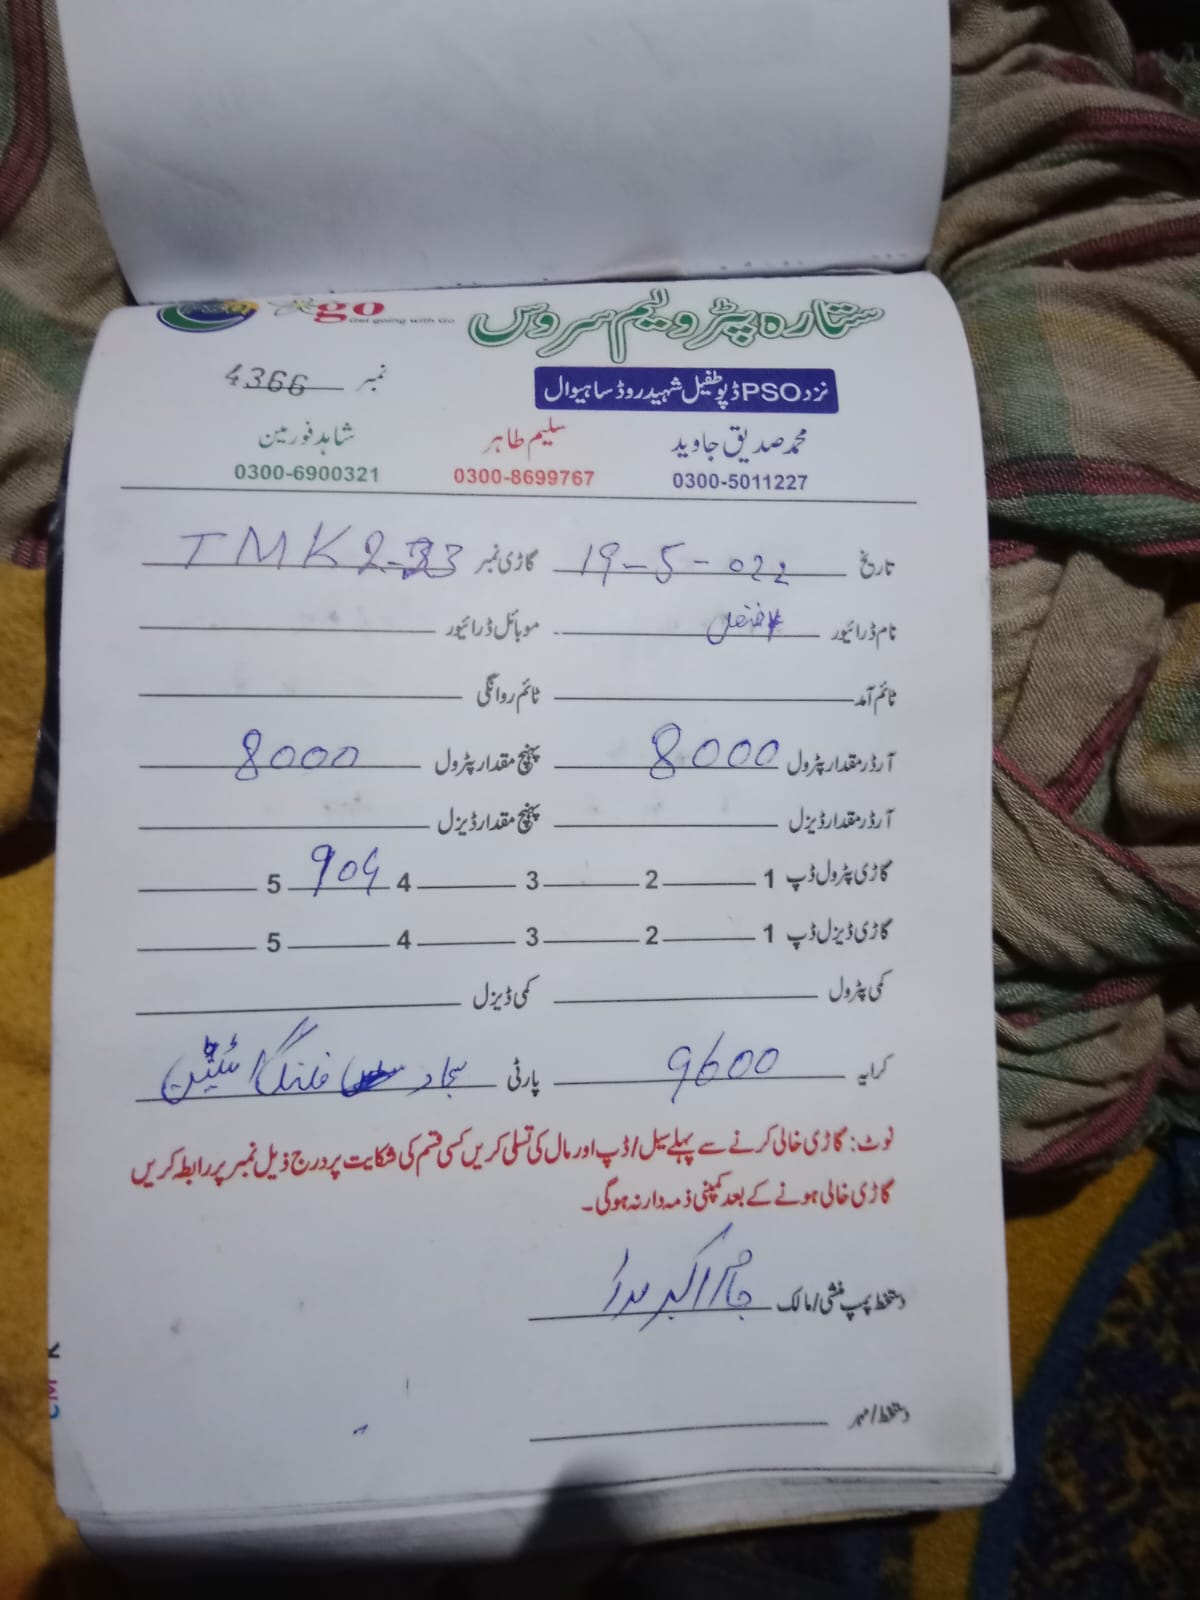 ستارہ پٹرولیم سروس go
Get going with Go
نزد PSO ڈپو طفیل شہید روڈ ساہیوال نمبر 4366
محمد صدیق جاوید سلیم طاہر شاہد فورمین
0300-5011227 0300-8699767 0300-6900321
تاریخ 19-5-022 گاڑی نمبر TMK 2-33
نام ڈرائیور موبائل ڈرائیور
ٹائم آمد ٹائم روانگی
آرڈر مقدار پٹرول 8000 پہنچ مقدار پٹرول 8000
آرڈر مقدار ڈیزل پہنچ مقدار ڈیزل
گاڑی پٹرول ڈپ 1 2 3 4 904 5
گاڑی ڈیزل ڈپ 1 2 3 4 5
کمی پٹرول کمی ڈیزل
کرایہ 9600 پارٹی سجاد فلنگ اسٹیشن
نوٹ: گاڑی خالی کرنے سے پہلے سیل/ڈپ اور مال کی تسلی کریں کسی قسم کی شکایت پر درج ذیل نمبر پر رابطہ کریں
گاڑی خالی ہونے کے بعد کمپنی ذمہ دار نہ ہوگی۔
دستخط پمپ منشی/مالک اکبر
دستخط/مہر